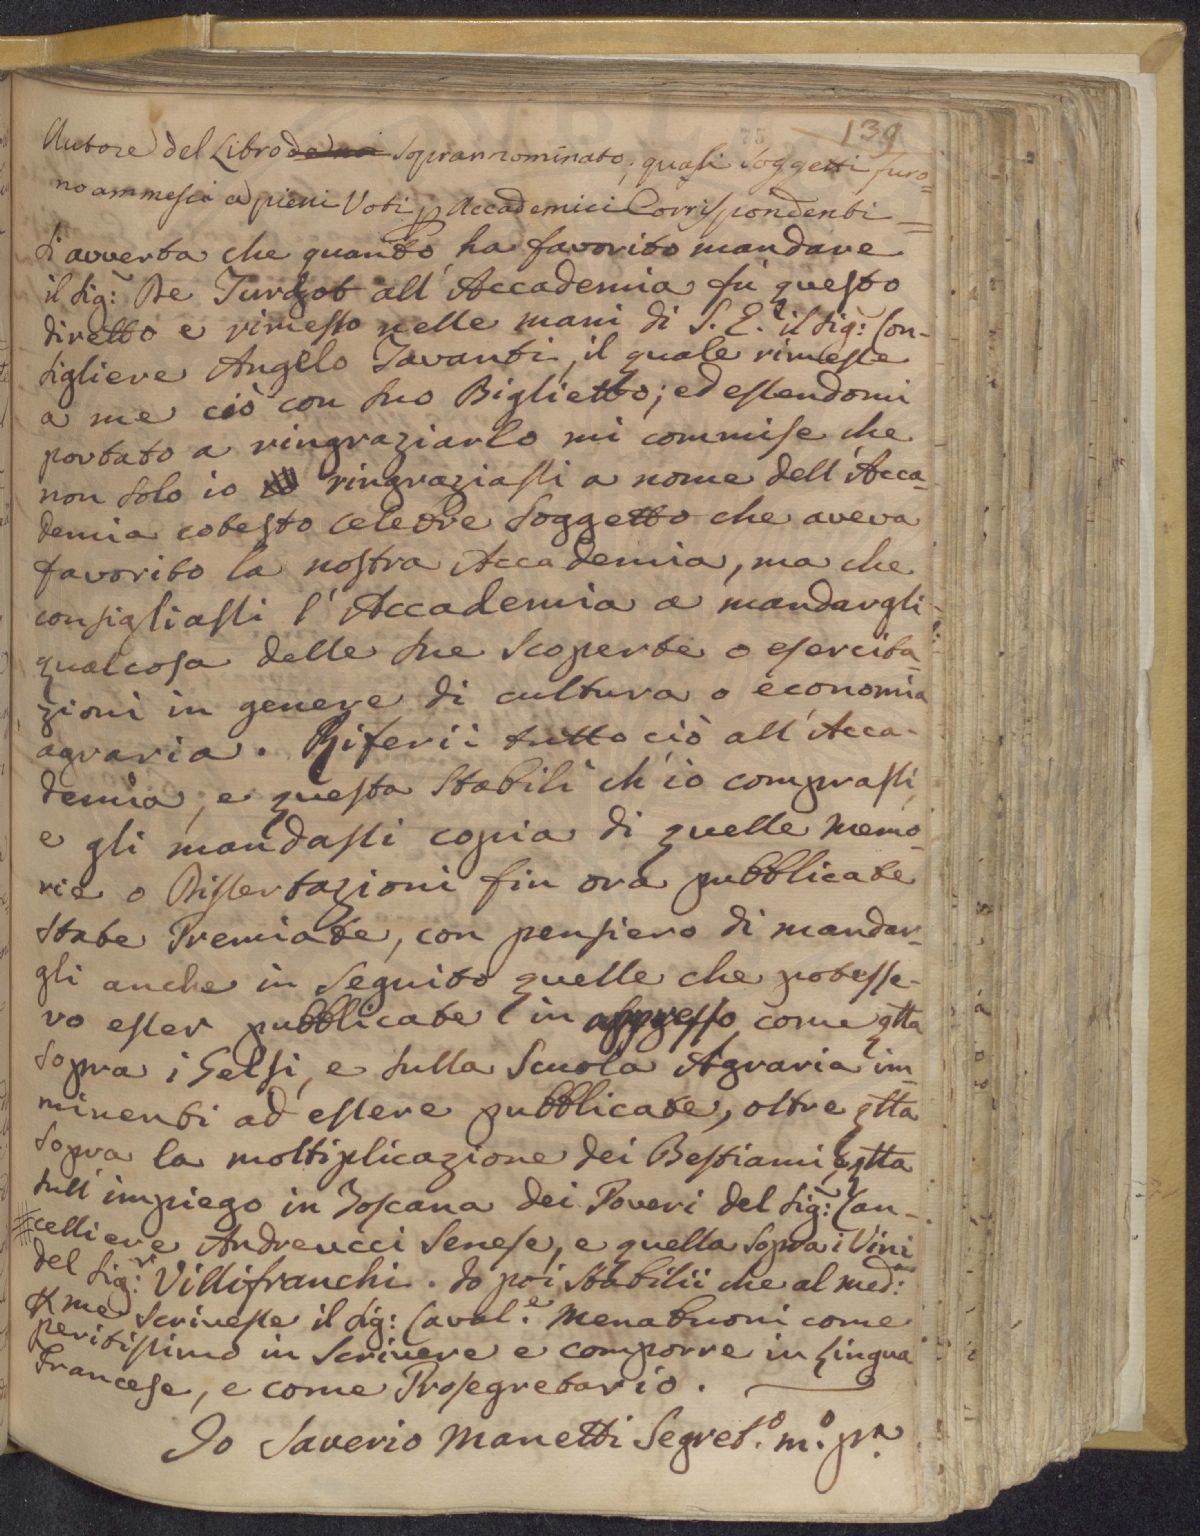 139
Autore del Libro de noi Soprannominato; quasi Soggetti furo=
no ammessi a pieni Voti p Accademici Corrispondenti =
Si avverta che quanto ha favorito mandare
il Sig: De Turgot all'Accademia fù questo
diretto e rimesso nelle mani di S. E. il Sig: Con-
sigliere Angelo Tavanti, il quale rimesse
a me ciò con suo Biglietto; ed essendomi
portato a ringraziarlo mi commise che
non solo io ringraziassi a nome dell'Acca-
demia cotesto celebre Soggetto che aveva
favorito la nostra Accademia, ma che
consigliassi l'Accademia a mandargli
qualcosa delle sue scoperte o esercita-
zioni in genere di cultura o economia
agraria. Riferii tutto ciò all'Acca-
demia, e questa Stabilì ch'io comprassi,
e gli mandassi copia di quelle Memo-
rie o Dissertazioni fin ora pubblicate
state Premiate, con pensiero di mandar-
gli anche in Seguito quelle che potesse-
ro esser pubblicate in appresso come qtta
sopra i Gelsi, e sulla Scuola Agraria im-
minenti ad essere pubblicate, oltre qtta
sopra la moltiplicazione dei Bestiami, qtta
sull'impiego in Toscana dei Poveri del Sig: Can-
celliere Andreucci Senese, e quella sopra i Vini
del Sig:r Villifranchi. Io poi stabilii che al med:mo
# me scrivesse il Sig: Caval.e Menabuoni come
peritissimo in Scrivere e comporre in Lingua
Francese, e come Prosegretario.
Io Saverio Manetti Segret.o m.o pa